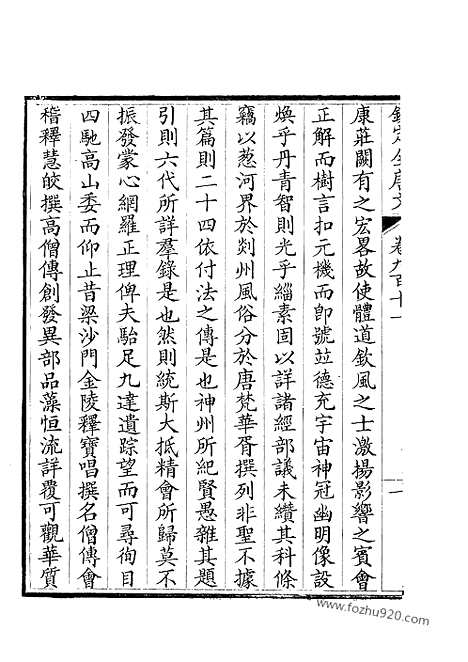 欽定全唐文 卷九百十一 一
康莊闢有之宏畧故使體道欽風之士激揚影響之賓會
正解而樹言扣元機而卽號竝德充宇宙神冠幽明像設
煥乎丹青智則光乎緇素固以詳諸經部議未纘其科條
竊以葱河界於剡州風俗分於唐梵華胥撰列非聖不據
其篇則二十四依付法之傳是也神州所紀賢愚雜其題
引則六代所詳羣錄是也然則統斯大抵精會所歸莫不
振發蒙心網羅正理俾夫駘足九達遺踪望而可尋徇目
四馳高山委而仰止昔梁沙門金陵釋寶唱撰名僧傳會
稽釋慧皎撰高僧傳創發異部品藻恒流詳覆可觀華質
www.fozhu920.com